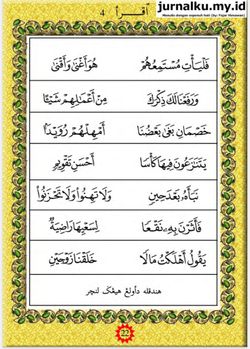 jurnalku.my.id
4 أقرأ
فَلْيَأْتِ مُسْتَمِعُهُمْ هُوَ أَغْنَىٰ وَأَقْنَىٰ
وَرَفَعْنَا لَكَ ذِكْرَكَ مِنْ أَعْمَالِهِمْ شَيْئًا
خَصْمَانِ بَغَىٰ بَعْضُنَا أَمْهِلْهُمْ رُوَيْدًا
يَتَنَازَعُونَ فِيهَا كَأْسًا أَحْسَنِ تَقْوِيمٍ
نَبَأَهُ بَعْدَ حِينٍ وَلَا تَهِنُوا وَلَا تَحْزَنُوا
فَأَثَرْنَ بِهِ نَقْعًا لِسَعْيِهَا رَاضِيَةٌ
يَقُولُ أَهْلَكْتُ مَالًا خَلَقْنَا زَوْجَيْنِ
هندقله دأولڠ هيڠݢ لنچر
22